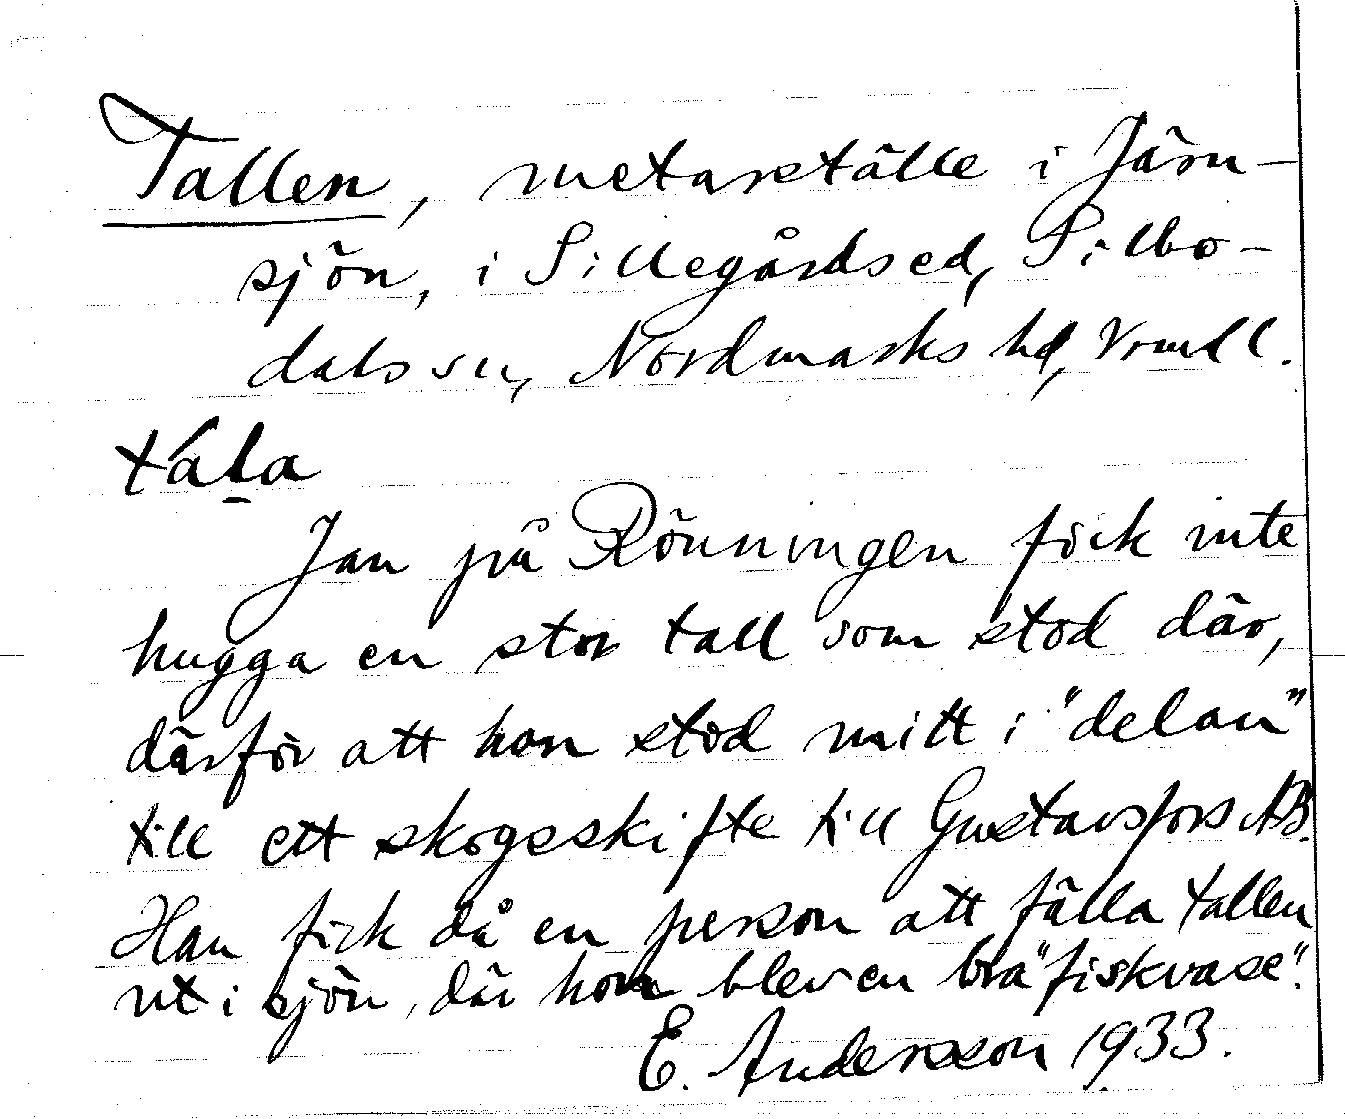 Tallen, metarställe i Järn-
sjön, i Sillegårdsed, Silbo-
dals sn, Nordmarks hd, Vrmll.
tála
Jan på Rönningen fick inte
hugga en stor tall som stod där,
därför att hon stod mitt i "delan"
till ett skogsskifte till Gustavsfors AB.
Han fick då en person att fälla tallen
ut i sjön, där hon blev en bra "fiskvase".
E. Andersson 1933.